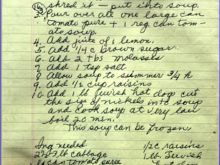 ② shred it - put into soup.
3. Pour over all one large can
tomato puree + 1 reg can tom-
ato soup.
4. Add juice of 1 lemon.
5. Add 1/4 c brown sugar
6. Add 2 tbs molasses
7. Add 1 tsp salt
8 Allow soup to simmer 3/4 h
9. Add 1/2 cup raisins
10. Add 1 lb flwish hot dog cut
the size of nickels into soup
and cook soup at very low
boil 20 min.
This soup can be frozen.
Ing needed
1/2c raisins
2 lb cabbage